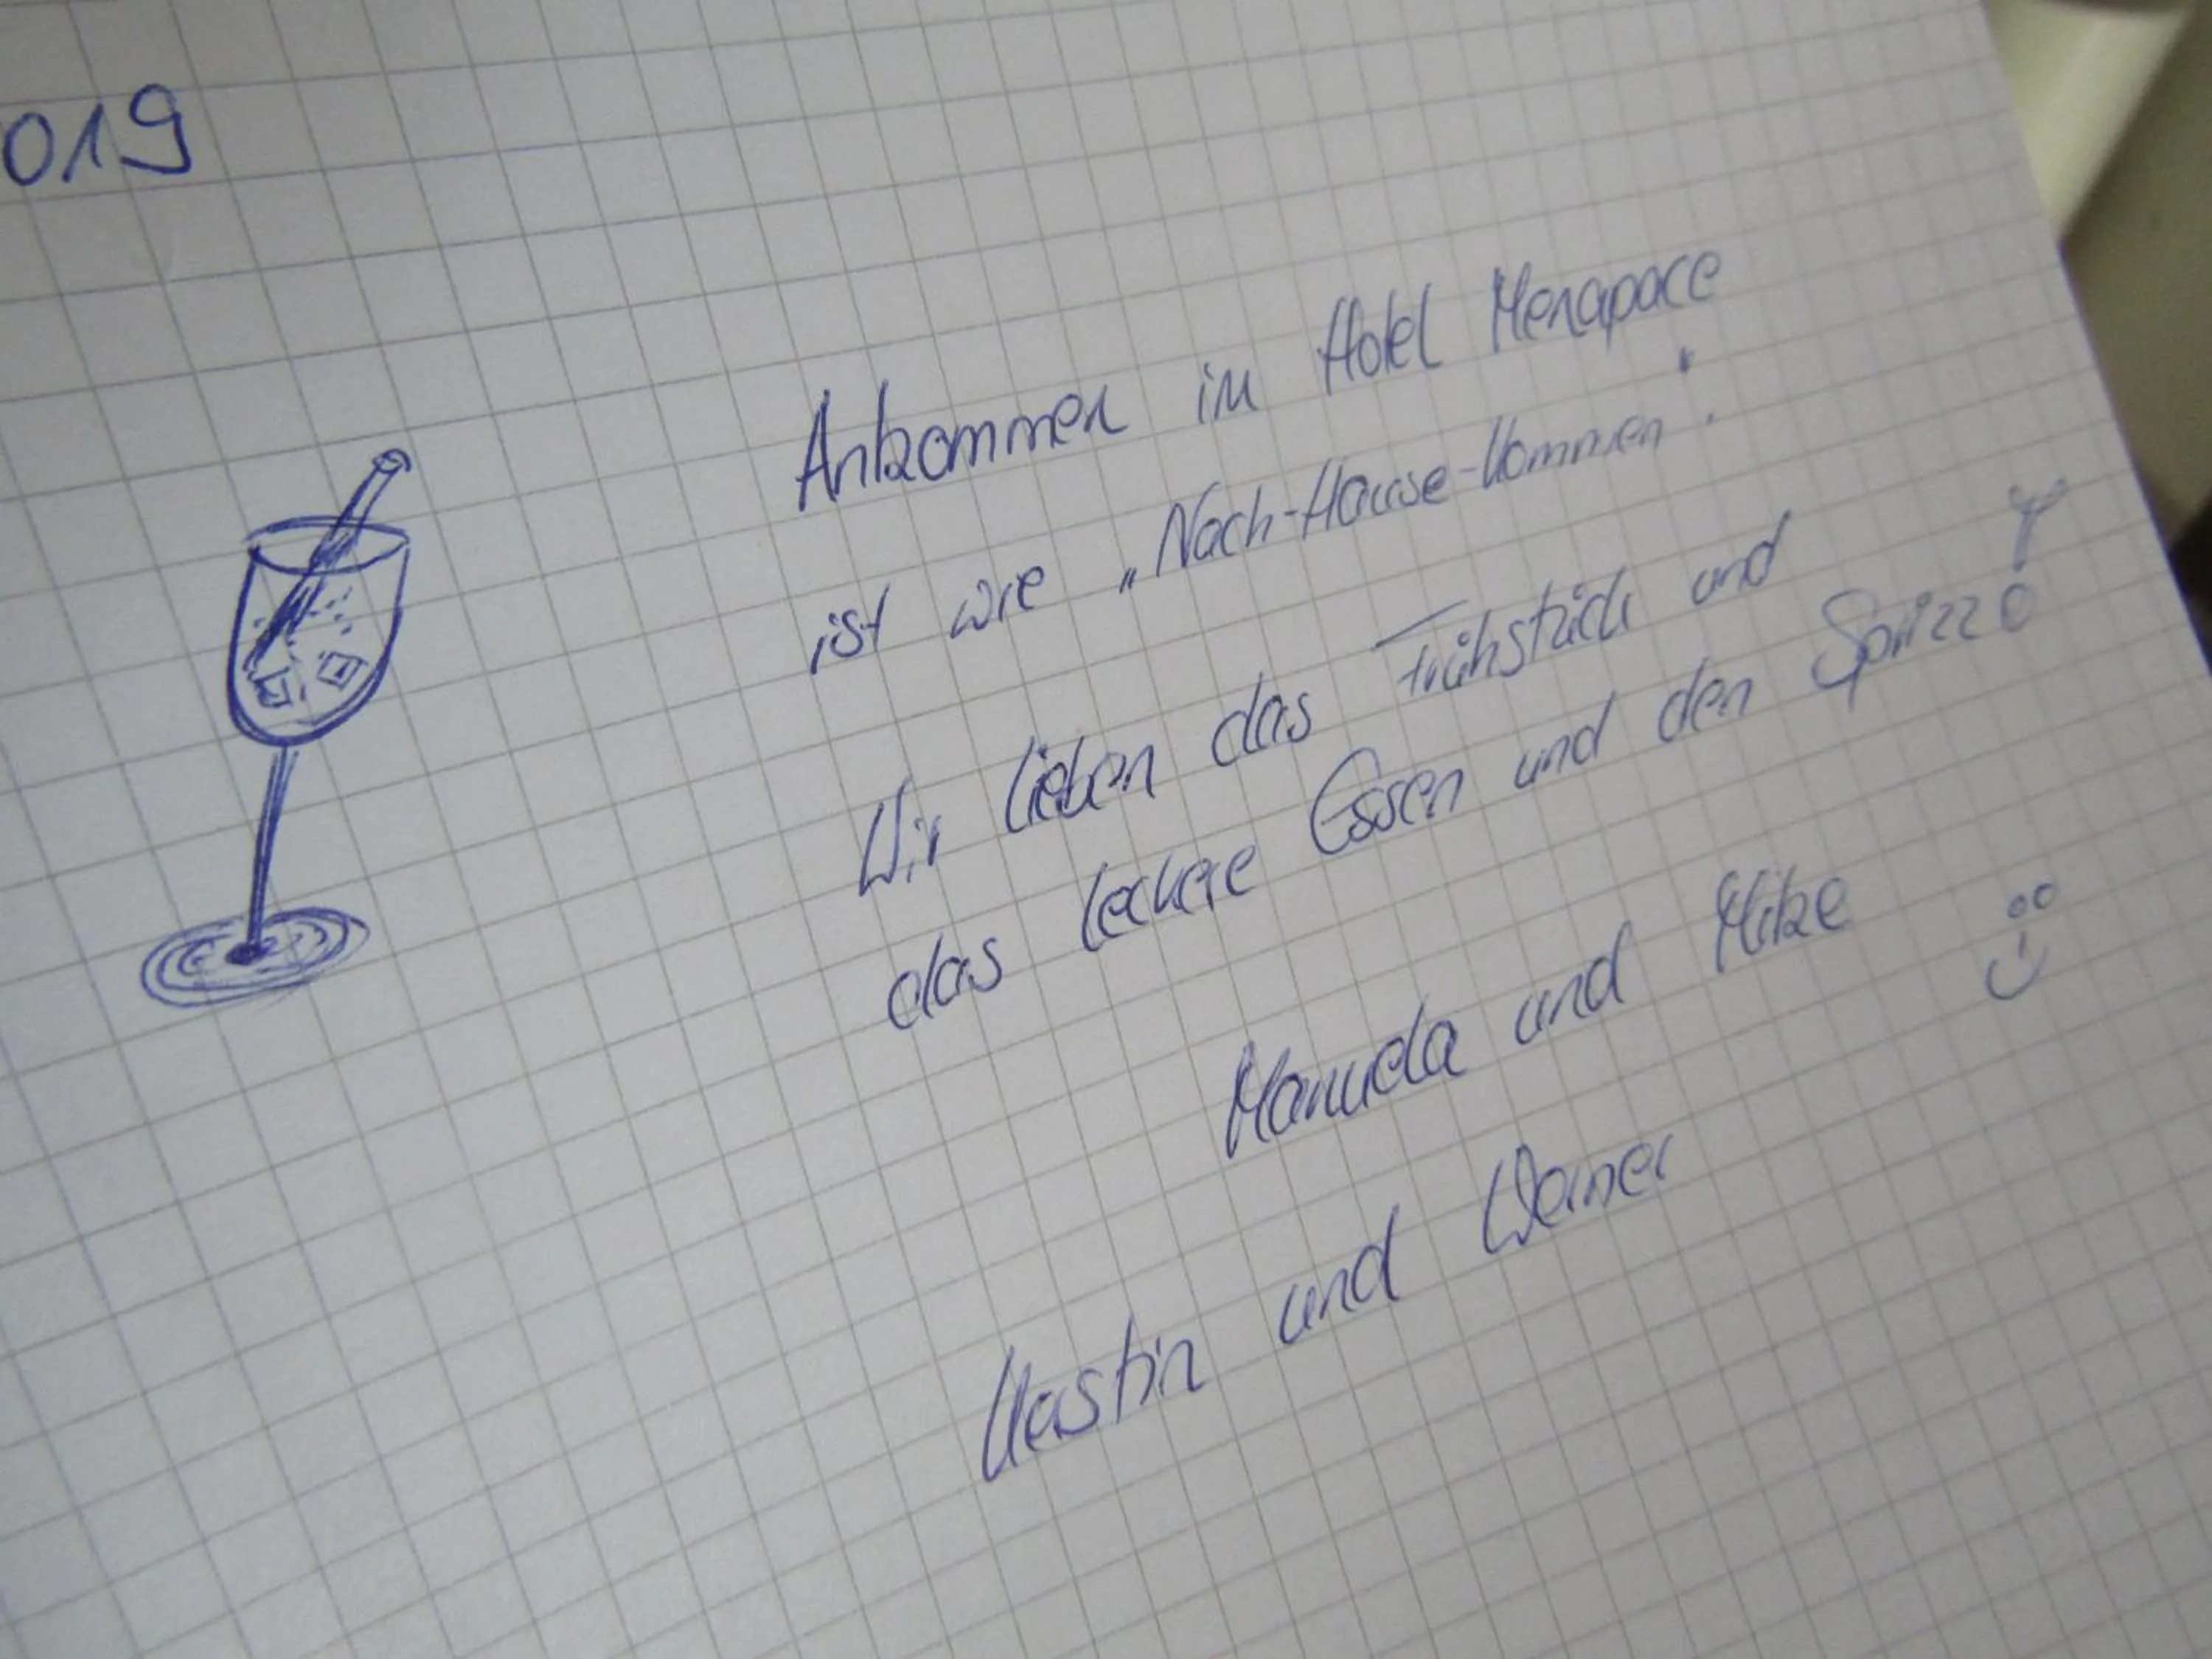 019
Ankommen im Hotel Menapace
ist wie „Nach-Hause-Kommen".
Wir lieben das Frühstück und
das leckere Essen und den Sprizz!
Manuela und Mike
Kerstin und Werner